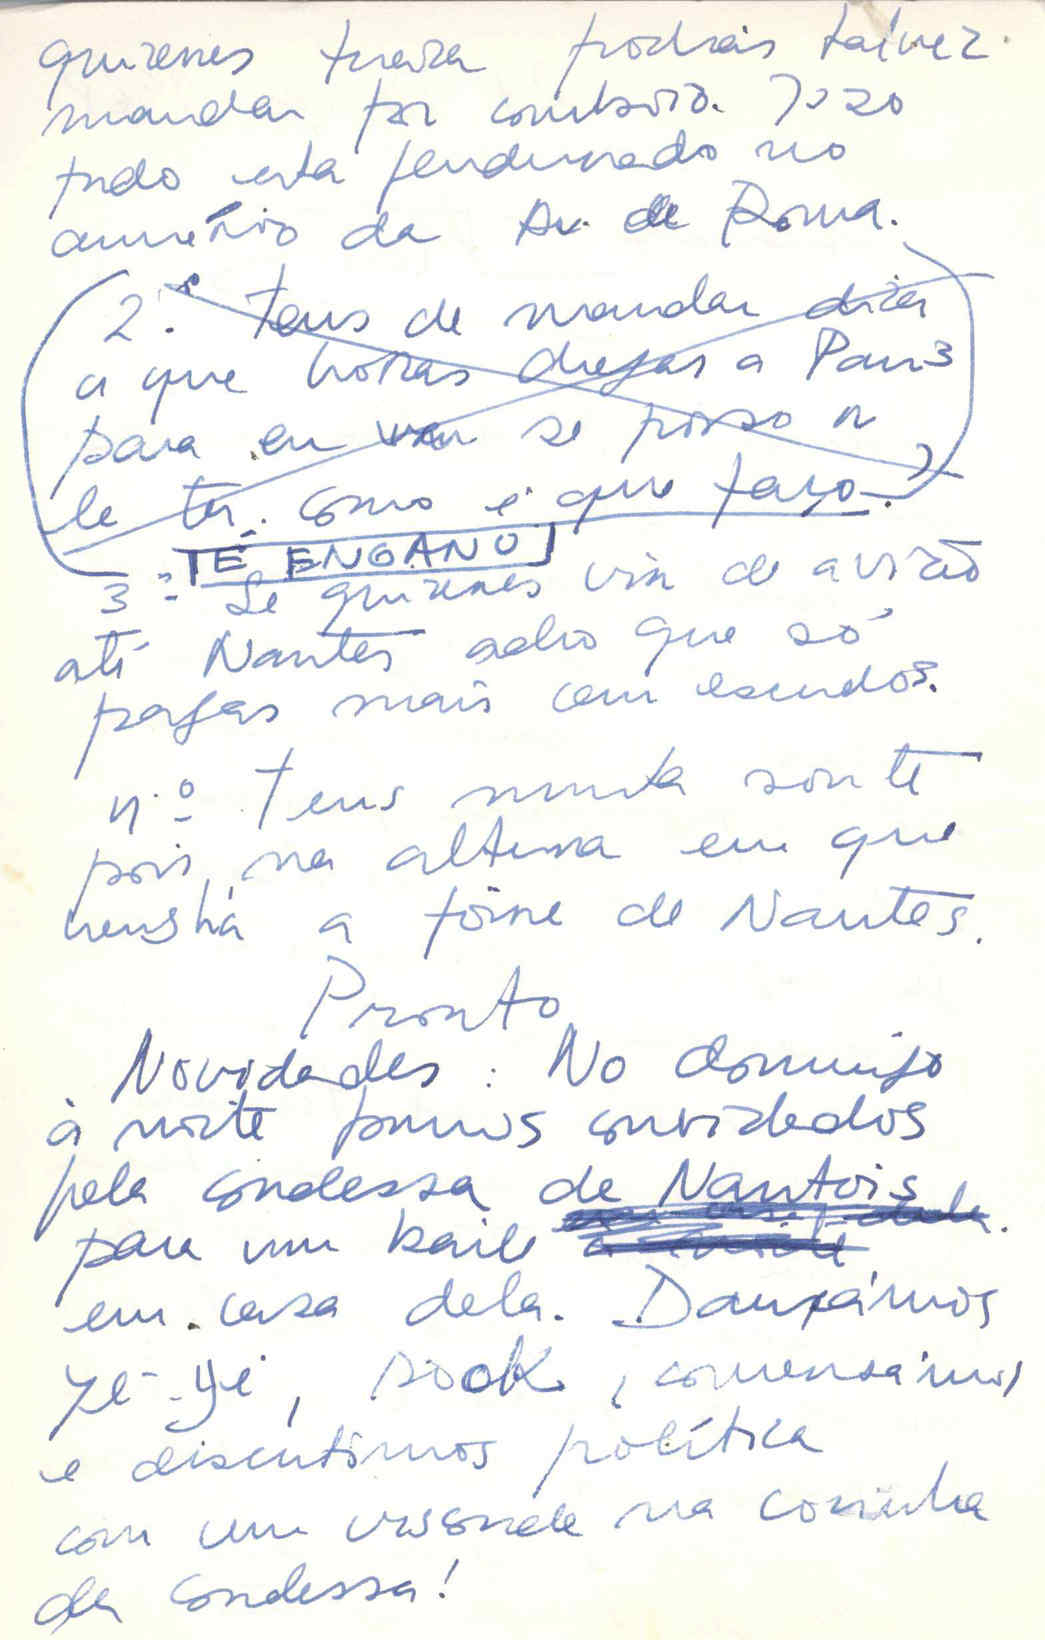 quizeres trazer podias talvez
mandar por comboio. Isso
tudo está pendurado no
armário da Av. de Roma.
2º. tens de mandar dizer
a que horas chegas a Paris
para eu ver se posso ir
te ter. Como é que faço?
É ENGANO
3º - Se quizeres vir de avião
até Nantes acho que só
pagas mais cem escudos.
4º Tens muita sorte
pois na altura em que
vens há a foire de Nantes.
Pronto
Novidades: No domingo
à noite fomos convidados
pela condessa de Nantois
para um baile
em casa dela. Dançámos
yé-yé, rock, conversámos
e discutimos política
com um visconde na cozinha
da condessa!